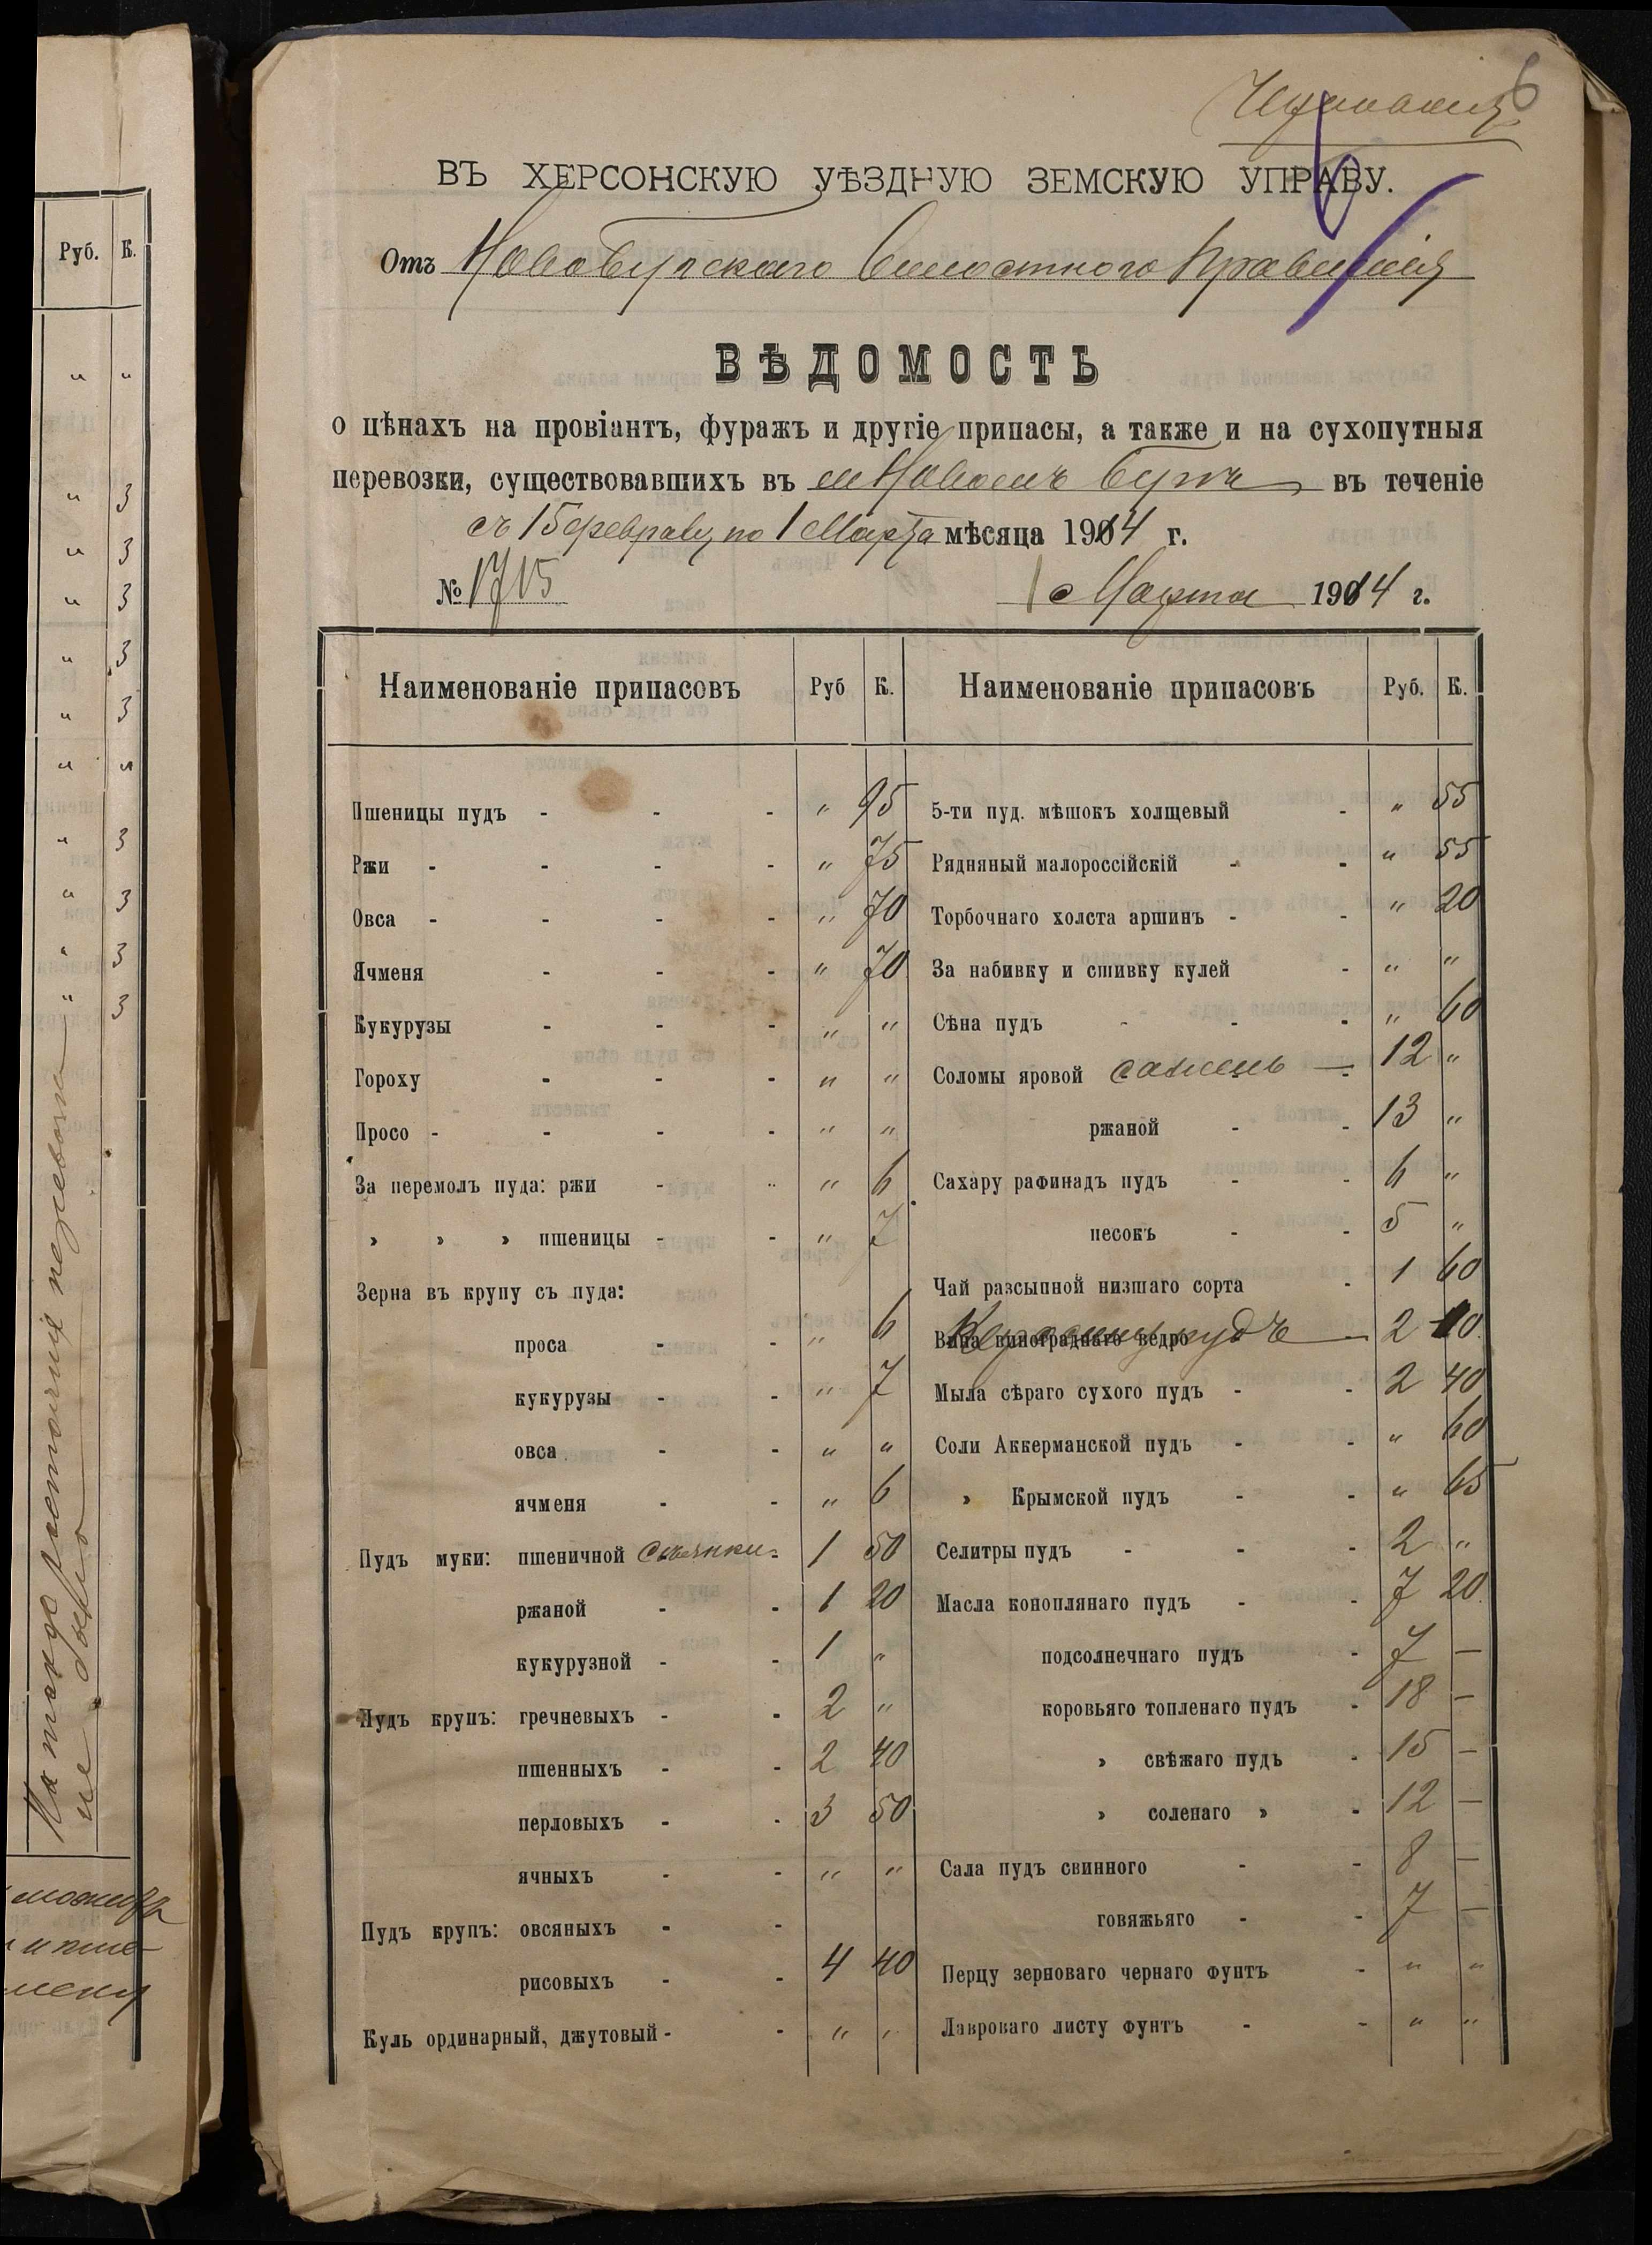 Руб. К.
" "
" 3
" 3
" 3
" 3
" 3
" "
" 3
" 3
" 3
" 3
не
6
ВЪ ХЕРСОНСКУЮ УѢЗДНУЮ ЗЕМСКУЮ УПРАВУ.
Отъ Новобугскаго Волостного Правленія
ВѢДОМОСТЬ
о цѣнахъ на провіантъ, фуражъ и другіе припасы, а также и на сухопутныя
перевозки, существовавшихъ въ м Новомъ Бугѣ въ теченіе
съ 15 февраля по 1 Марта мѣсяца 1914 г.
№ 1715 1 Марта 1914 г.
Наименованіе припасовъ Руб К. Наименованіе припасовъ Руб. К.
Пшеницы пудъ - - - " 95 5-ти пуд. мѣшокъ холщевый - " 55
Ржи - - - - " 75 Рядняный малороссійскій - - " 55
Овса - - - - " 70 Торбочнаго холста аршинъ - - " 20
Ячменя - - - " 70 За набивку и сшивку кулей - " "
Кукурузы - - - " " Сѣна пудъ - - - " 60
Гороху - - - " " Соломы яровой сажень - 12 "
Просо - - - - " " ржаной - - 13 "
За перемолъ пуда: ржи - - " 6 Сахару рафинадъ пудъ - - 6 "
» » » пшеницы - - " 7 песокъ - - 5 "
Зерна въ крупу съ пуда: Чай разсыпной низшаго сорта - 1 60
проса - - " 6 Вина винограднаго ведро Керосину пудъ - 2 10
кукурузы - - " 7 Мыла сѣраго сухого пудъ - - 2 40
овса - - " " Соли Аккерманской пудъ - - " 60
ячменя - - " 6 » Крымской пудъ - - " 65
Пудъ муки: пшеничной - 1 50 Селитры пудъ - - - 2 "
ржаной - - 1 20 Масла коноплянаго пудъ - - 7 20
кукурузной - - 1 " подсолнечнаго пудъ - 7 —
Пудъ крупъ: гречневыхъ - - 2 " коровьяго топленаго пудъ - 18 —
пшенныхъ - - 2 40 » свѣжаго пудъ - 15 —
перловыхъ - - 3 50 » соленаго » - 12 —
ячныхъ - - " " Сала пудъ свинного - - 8 —
Пудъ крупъ: овсяныхъ - - говяжьяго - - 7 —
рисовыхъ - - 4 40 Перцу зерноваго чернаго фунтъ - " "
Куль ординарный, джутовый - - " " Лавроваго листу фунтъ - - " "